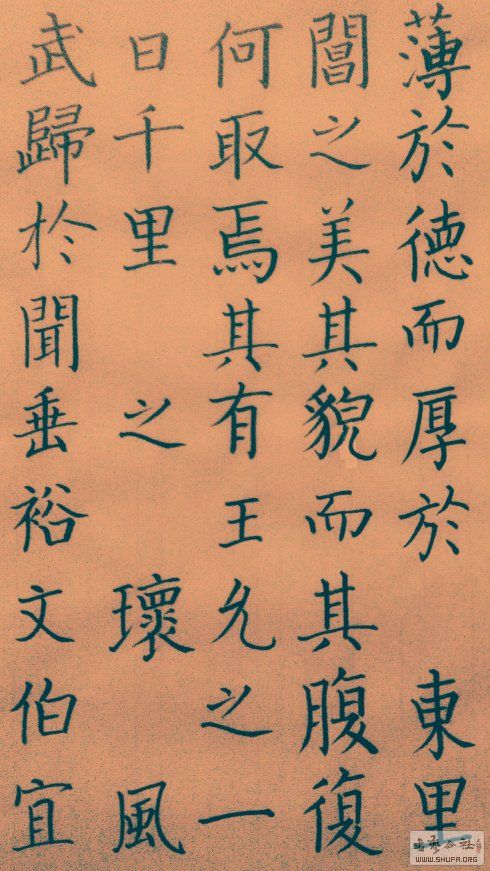 薄於德而厚於 東里
閭之美其貌而其腹復
何取焉其有王允之一
日千里 之 瓌 風
武歸於聞垂裕文伯宜
WWW.SHUFA.ORG